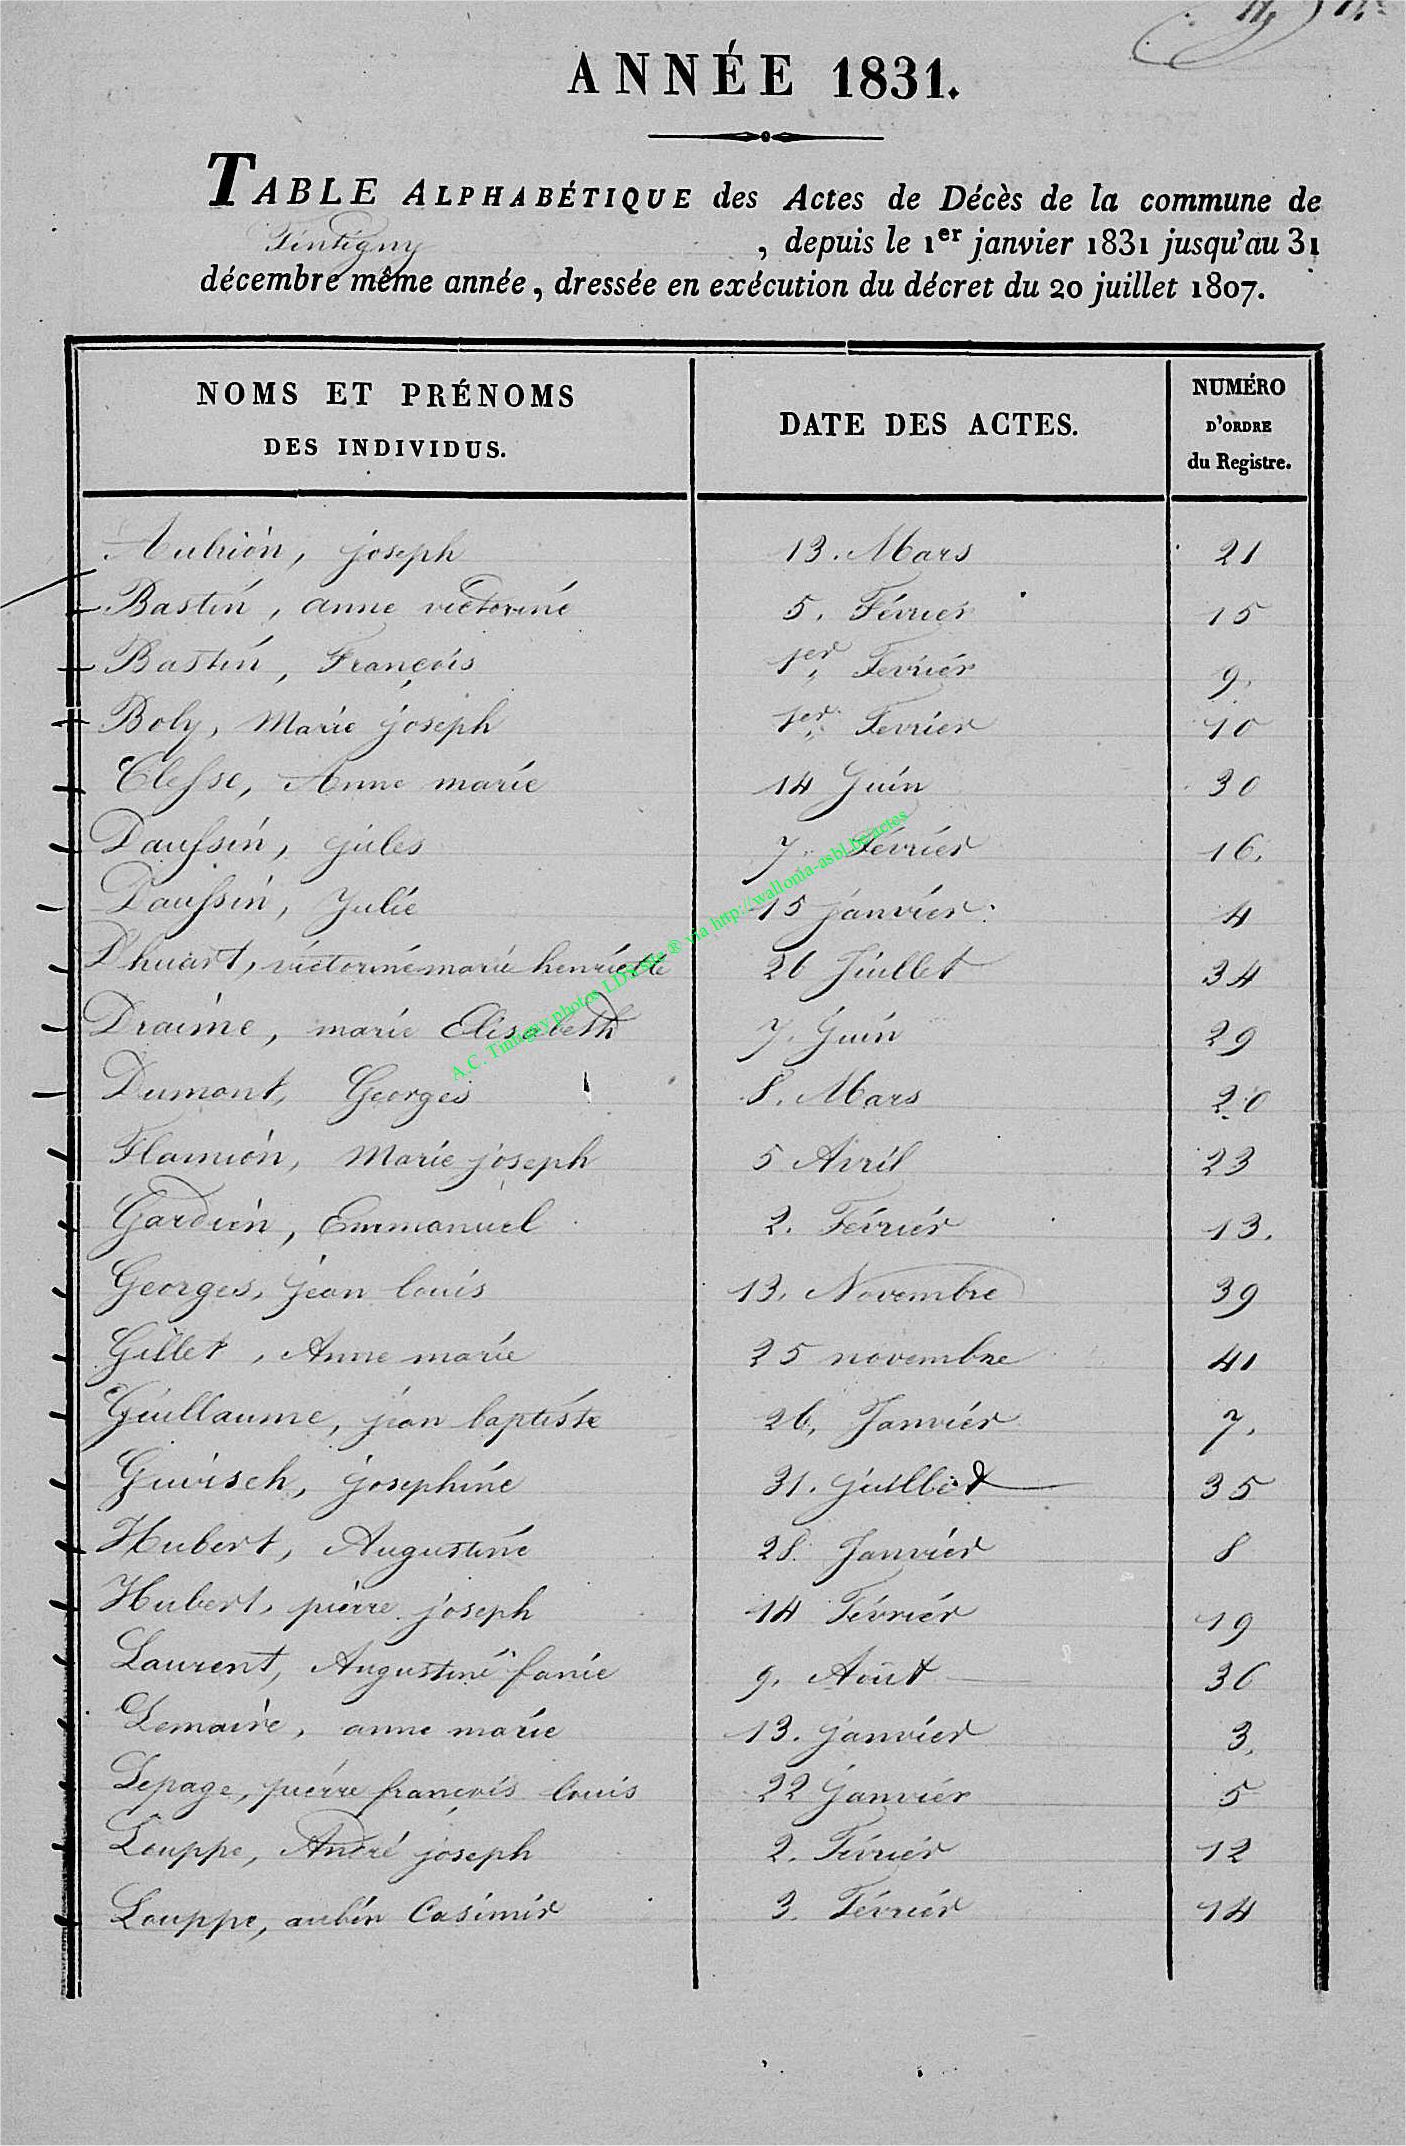 ANNÉE 1831.
TABLE ALPHABÉTIQUE des Actes de Décès de la commune de
Tintigny , depuis le 1er janvier 1831 jusqu'au 31
décembre même année, dressée en exécution du décret du 20 juillet 1807.
NOMS ET PRÉNOMS
DES INDIVIDUS.
DATE DES ACTES.
NUMÉRO
D'ORDRE
du Registre.
Aubrion, joseph 13. Mars 21
Bastin, anne victorine 5. Février 15
Bastin, François 1er, Fevrier 9.
Boly, Marie joseph 1er, Fevrier 10
Clesse, Anne marie 14 Juin 30
Daussin, jules 7. Février 16.
Daussin, Julie 15 janvier. 4
D'huart, victorine marie henriette 26 Juillet 34
Draime, marie Elisabeth 7. Juin 29
Dumont, Georges 8. Mars 20
Flamion, Marie joseph 5 Avril 23
Gardien, Emmanuel 2. Février 13.
Georges, jean louis 13. Novembre 39
Gillet, Anne marie 25 novembre 41
Guillaume, jean baptiste 26, Janvier 7.
Guvisch, josephine 31. juillet 35
Hubert, Augustine 28. Janvier 8
Hubert, pierre joseph 14 Février 19
Laurent, Augustine fanie 9. Août 36
Lemaire, anne marie 13. janvier 3.
Lepage, pierre françois louis 22 janvier 5
Louppe, André joseph 2. Février 12
Louppe, aubin Casimir 3. Février 14
A.C. Tintigny photos LDS site ® via http://wallonia-asbl.be/actes